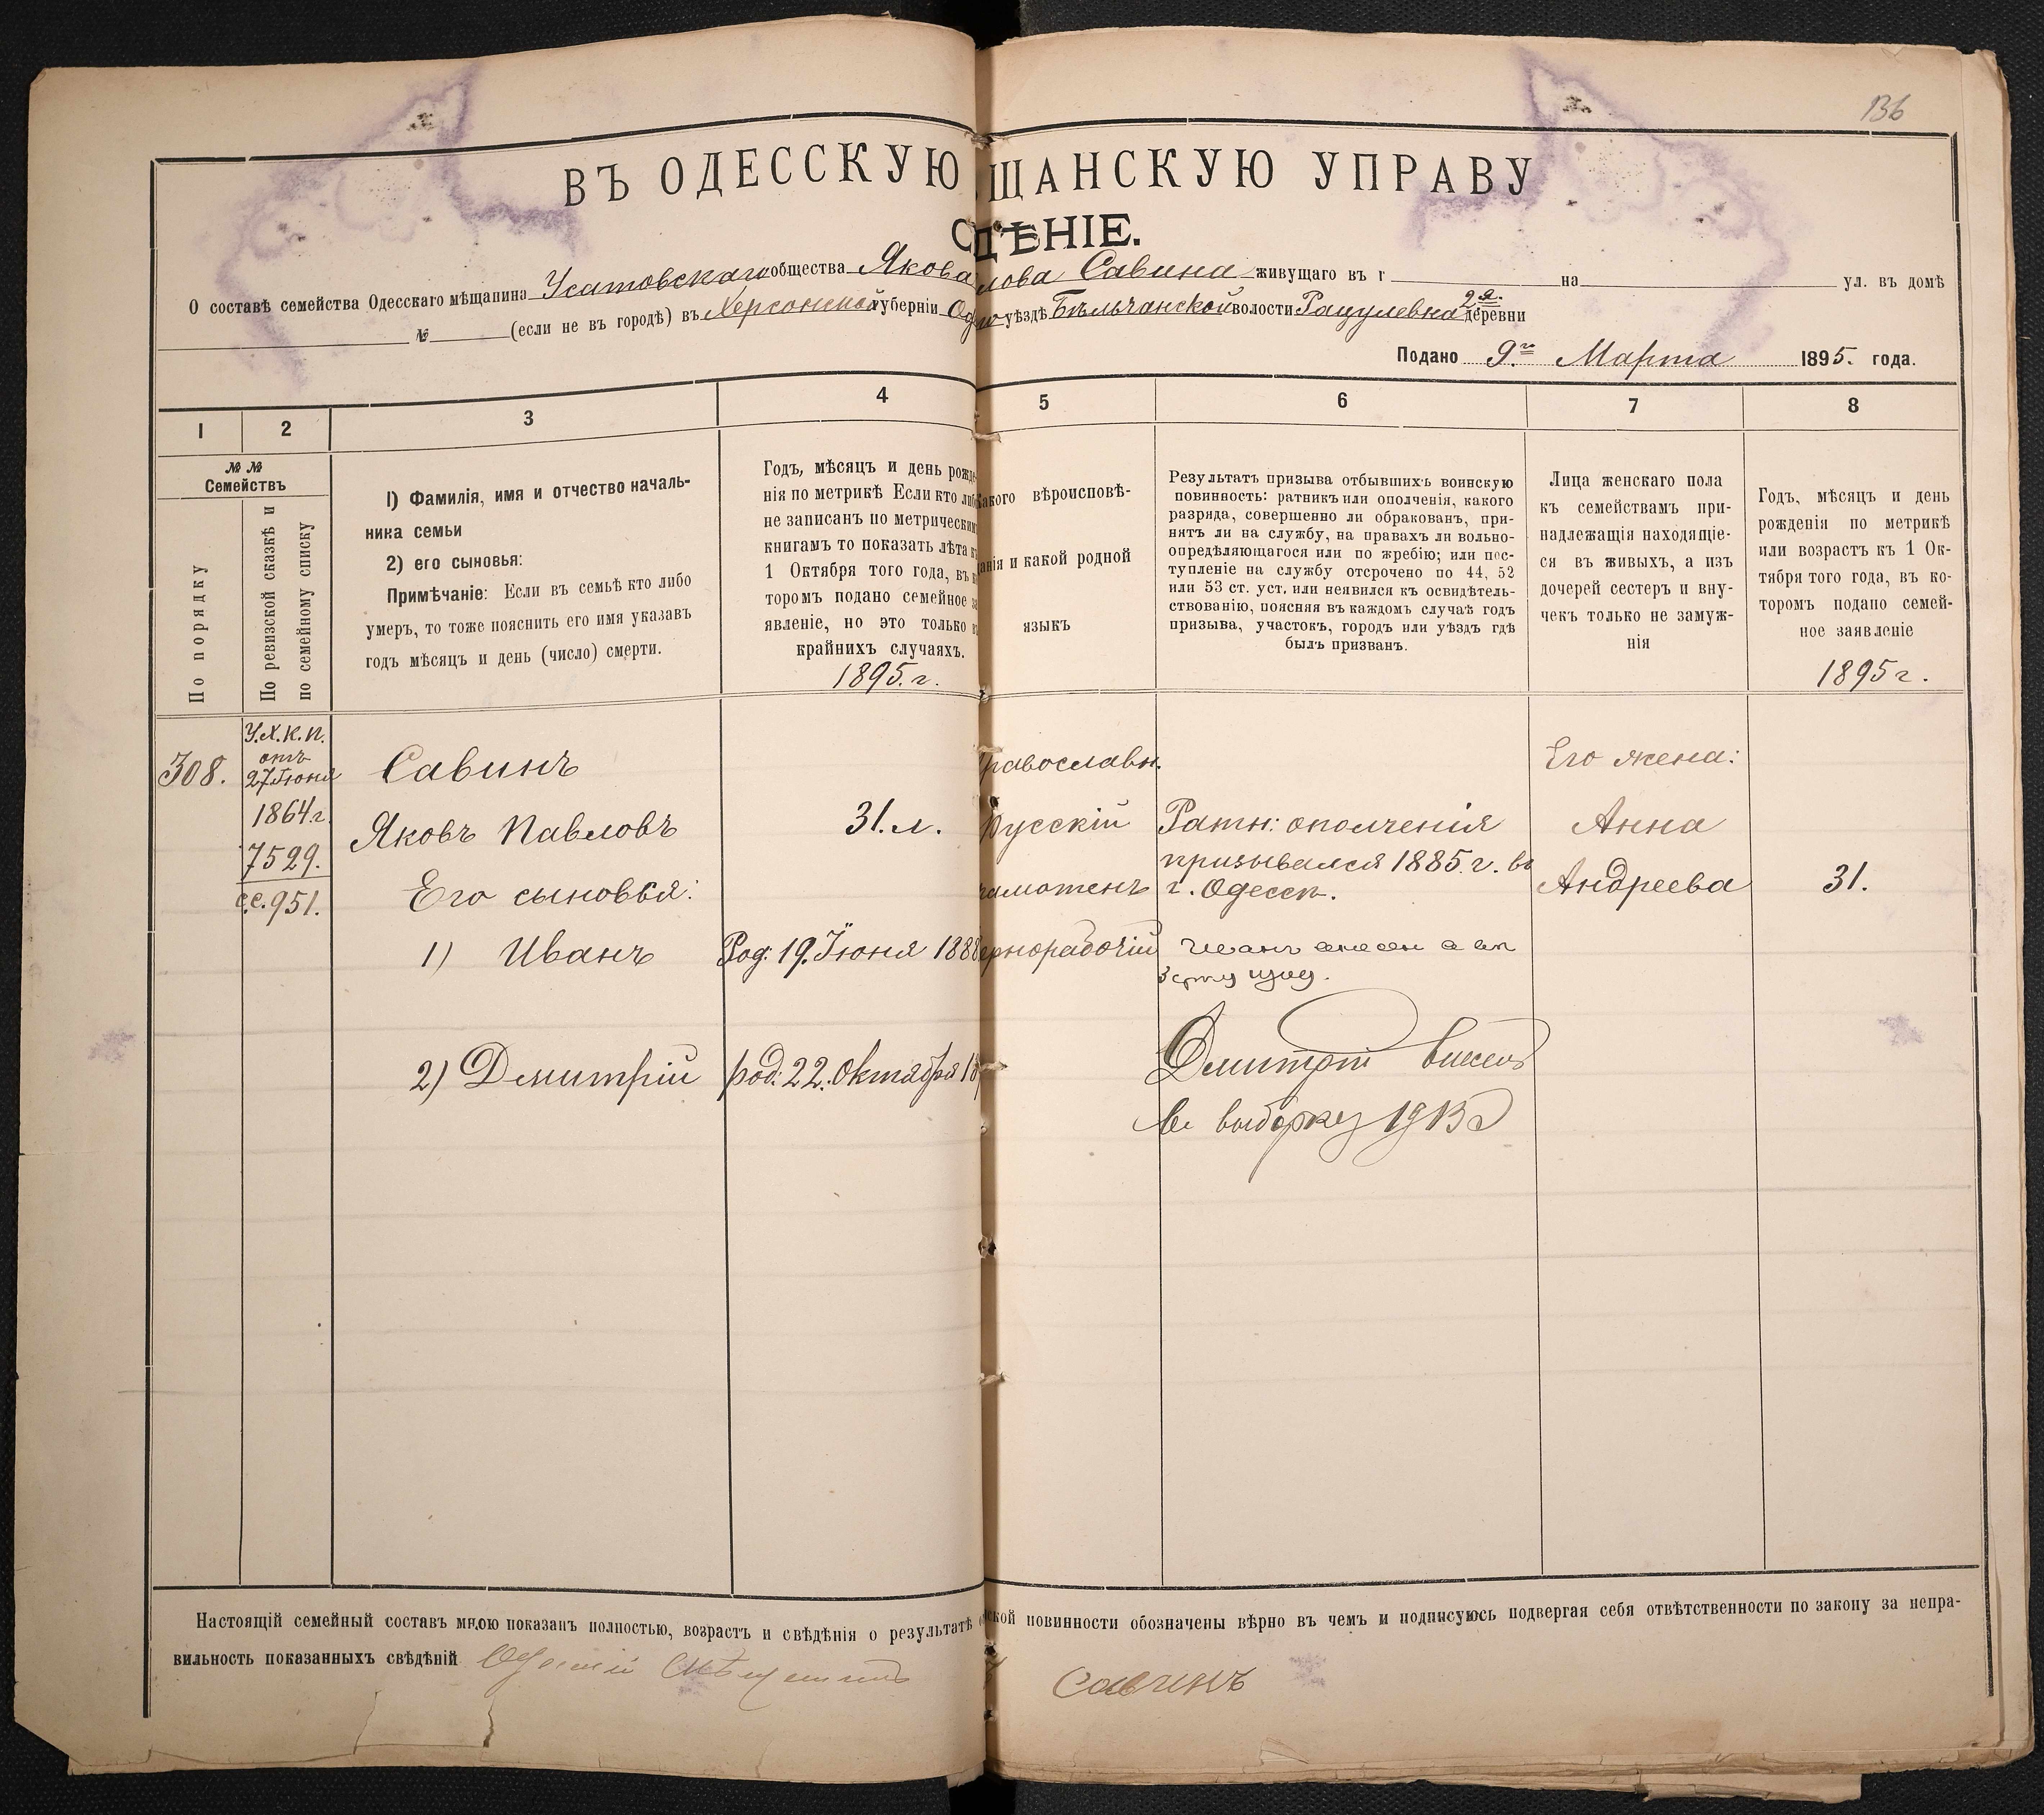 136
ВЪ ОДЕССКУЮ ЩАНСКУЮ УПРАВУ
ДѢНІЕ.
О составѣ семейства Одесскаго мѣщанина Усатовскаго общества Якова лова Савина живущаго въ г на ул. въ домѣ
№ (если не въ городѣ) въ Херсонской губерніи уѣздѣ Бѣльчанской волости Рацулевка 2я. деревни
Подано 9го Марта 1895. года.
1 2 3 4 5 6 7 8
№ № Семействъ
По порядку
По ревизской сказкѣ и
по семейному списку
1) Фамилія, имя и отчество началь-
ника семьи
2) его сыновья:
Примѣчаніе: Если въ семьѣ кто либо
умеръ, то тоже пояснить его имя указавъ
годъ мѣсяцъ и день (число) смерти.
Годъ, мѣсяцъ и день рожде-
нія по метрикѣ Если кто либо
не записанъ по метрическим
книгамъ то показать лѣта
1 Октября того года, въ
торомъ подано семейное
явленіе, но это только
крайнихъ случаяхъ.
1895.г.
какого вѣроисповѣ-
данія и какой родной
языкъ
Результатъ призыва отбывшихъ воинскую
повинность: ратникъ или ополченія, какого
разряда, совершенно ли обракованъ, при-
нятъ ли на службу, на правахъ ли вольно-
опредѣляющагося или по жребію; или пос-
тупленіе на службу отсрочено по 44, 52
или 53 ст. уст. или неявился къ освидѣтель-
ствованію, поясняя въ каждомъ случаѣ годъ
призыва, участокъ, городъ или уѣздъ гдѣ
былъ призванъ.
Лица женскаго пола
къ семействамъ при-
надлежащія находящіе-
ся въ живыхъ, а изъ
дочерей сестеръ и вну-
чекъ только не замуж-
нія
Годъ, мѣсяцъ и день
рожденія по метрикѣ
или возрастъ къ 1 Ок-
тября того года, въ ко-
торомъ подано семей-
ное заявленіе
1895 г.
308.
У.Х.К.П.
отъ
27 Іюня
1864 г.
7529.
с.с. 951.
Савинъ
Яковъ Павловъ
Его сыновья:
1) Иванъ
2) Демитрій
31.л.
Род: 19. Іюня 1888
род: 22. Октября 18
Православн.
Русскій
рамотенъ
ернорабочій
Ратн: ополченія
призывался 1885.г. въ
г. Одессѣ.
Иванъ
Дмитрій внесенъ
въ выборку 1913 г
Его жена:
Анна
Андреева
31.
Настоящій семейный составъ мною показанъ полностью, возрастъ и свѣдѣнія о результатѣ ской повинности обозначены вѣрно въ чемъ и подписуюсь подвергая себя отвѣтственности по закону за непра-
вильность показанныхъ свѣдѣній Савинъ